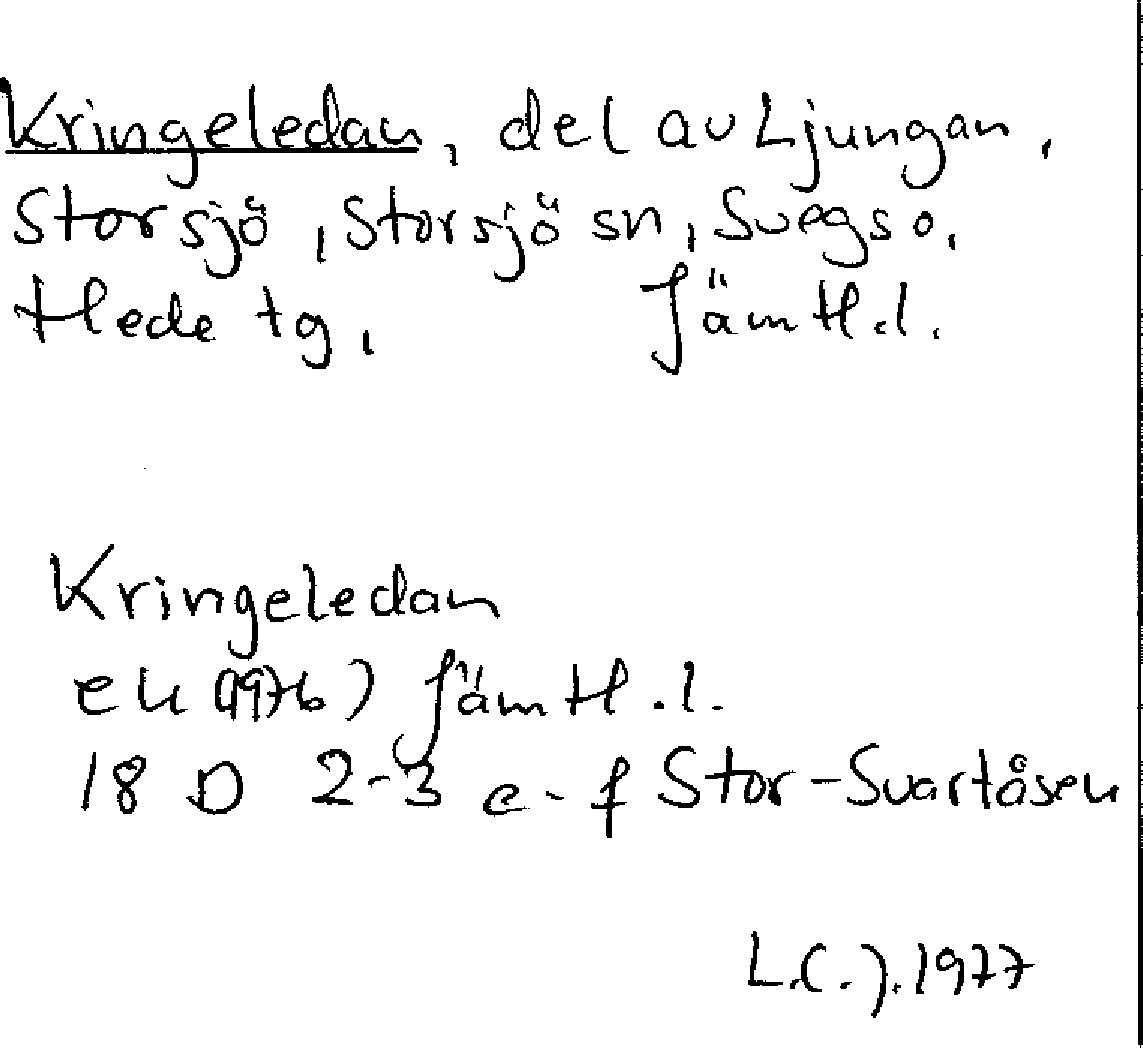 Kringeledan, del av Ljungan,
Storsjö, Storsjö sn, Svegs o,
Hede tg, Jämtl.l.
Kringeledan
ek (1976) Jämtl.l.
18 D 2-3 e-f Stor-Svartåsen
L.C.J. 1977